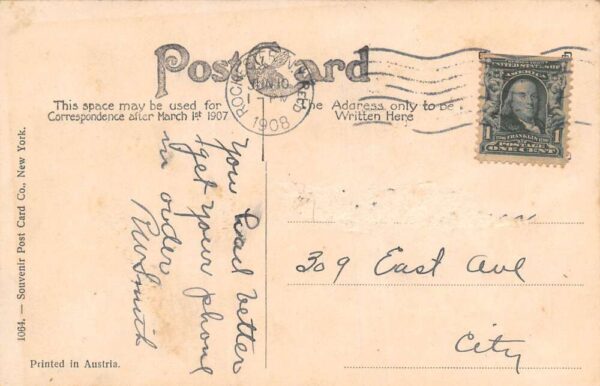 Post Card
This space may be used for
Correspondence after March 1st 1907
The Address only to be
Written Here
JUN 10
1908
UNITED STATES OF
AMERICA
1
FRANKLIN
1
POSTAGE
ONE CENT
You had better
get your phone
in order
RW Smith
309 East Ave
City
1064. — Souvenir Post Card Co., New York.
Printed in Austria.